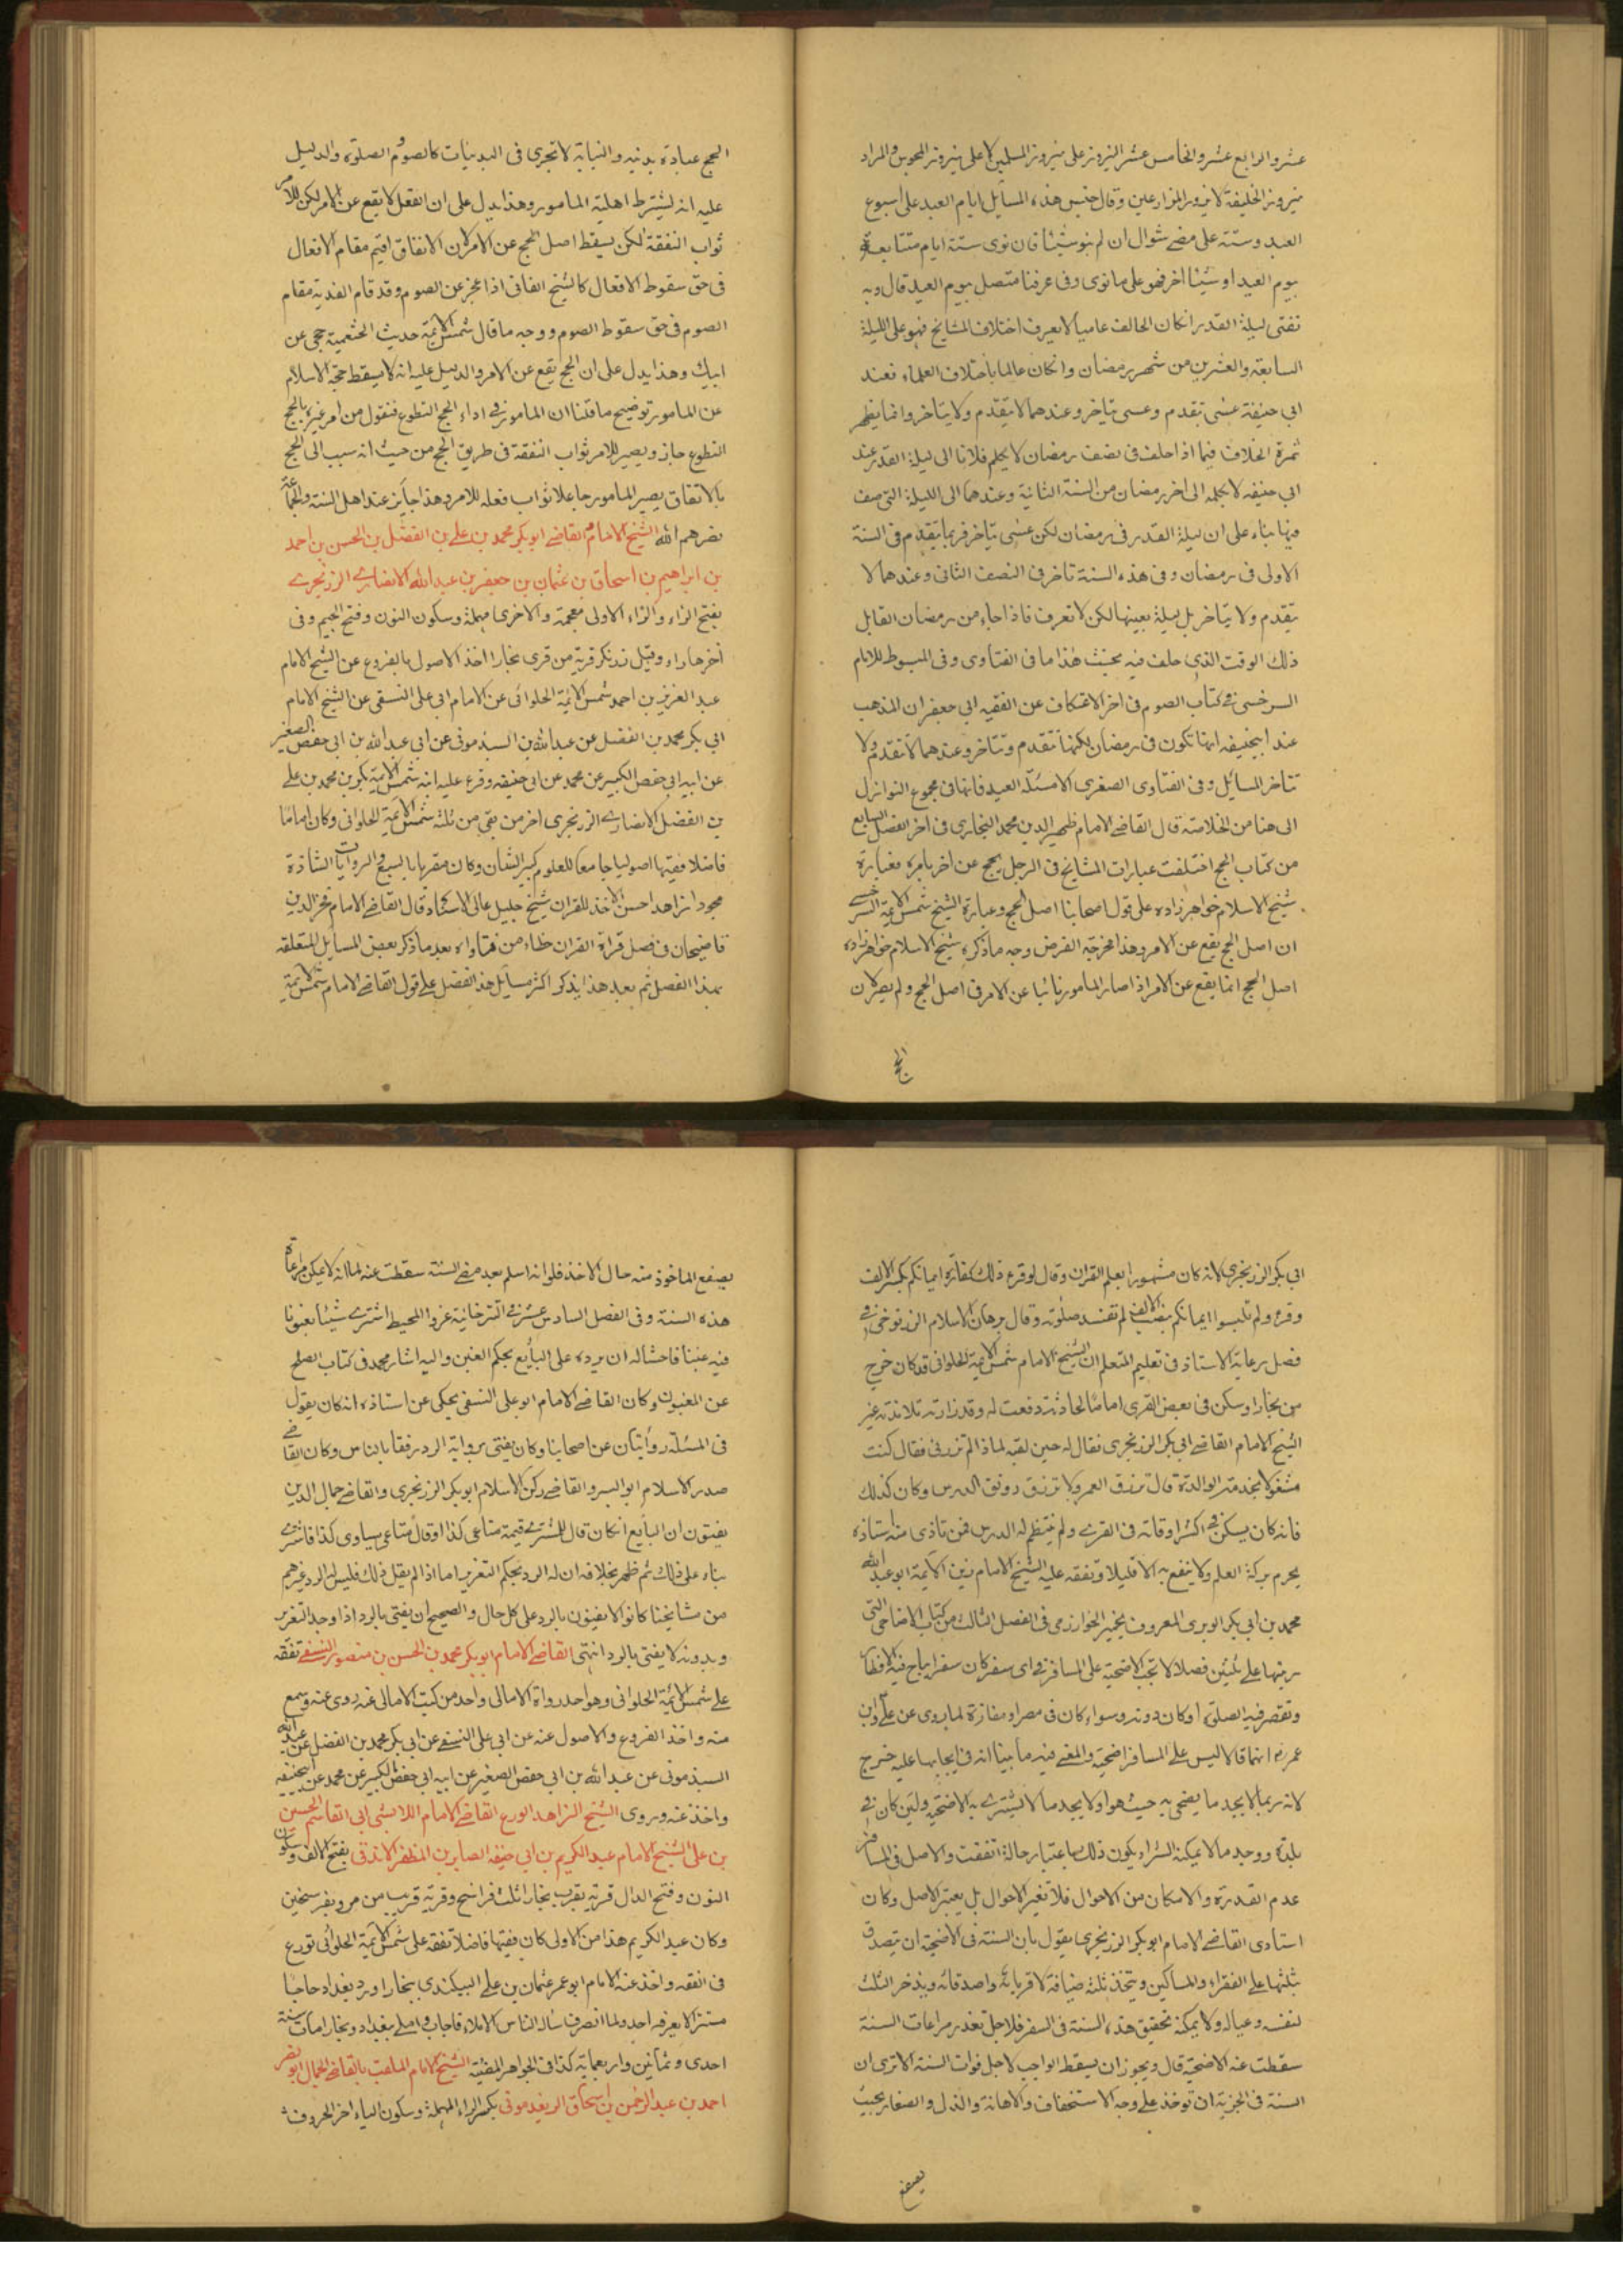 عشر والرابع عشر والخامس عشر النيروز على نيروز المسلمين لا على نيروز المجوس والمراد
نيروز الخليفة لا نيروز المزارعين وقال جنس هذه المسائل ايام العيد على اسبوع
العيد وستة على مضي شوال ان لم ينو شيئا فان نوى ستة ايام متتابعة
بيوم العيد او شيئا اخر فهو على ما نوى وفى عرفنا متصل بيوم العيد قال وبه
نفتى ليلة القدر ان كان الحالف عاميا لا يعرف اختلاف المشايخ فهو على الليلة
السابعة والعشرين من شهر رمضان وان كان عالما باختلاف العلماء فعند
ابي حنيفة عسى تقدم وعسى تتاخر وعندهما لا يتقدم ولا يتاخر وانما يظهر
ثمرة الخلاف فيما اذا حلف فى نصف رمضان لا يكلم فلانا الى ليلة القدر عند
ابي حنيفه لا يكلمه الى اخر رمضان من السنة الثانية وعندهما الى الليلة التى حلف
فيها بناء على ان ليلة القدر فى رمضان لكن عسى يتاخر فربما يتقدم فى السنة
الاولى فى رمضان وفى هذه السنة تاخر فى النصف الثانى وعندهما لا
يتقدم ولا يتاخر بل ليلة بعينها لكن لا تعرف فاذا جاء من رمضان القابل
ذلك الوقت الذى حلف فيه يحنث هذا ما فى الفتاوى وفى المبسوط للامام
السرخسى فى كتاب الصوم فى اخر الاعتكاف عن الفقيه ابي جعفر ان المذهب
عند ابيحنيفه انها تكون فى رمضان لكنها تتقدم وتتاخر وعندهما لا تتقدم ولا
تتاخر المسائل وفى الفتاوى الصغرى الا مسئلة العيد فانها فى مجموع النوازل
الى هنا من الخلاصة قال القاضى الامام ظهير الدين محمد البخارى فى اخر الفصل السابع
من كتاب الحج اختلفت عبارات المشايخ فى الرجل يحج عن اخر بامره فعبارة
شيخ الاسلام خواهر زاده على قول اصحابنا اصل الحج وعبارة الشيخ شمس الائمة السرخسى
ان اصل الحج يقع عن الامر وهذا مخرجة الفرض وجه ما ذكره شيخ الاسلام خواهر زاده
اصل الحج انما يقع عن الامر اذا صار المامور نائبا عن الامر فى اصل الحج ولم يصر لان
الحج
الحج عبادة بدنية والنيابة لا تجرى فى البدنيات كالصوم والصلوة والدليل
عليه انه يشترط اهلية المامور وهذا يدل على ان الفعل لا يقع عن الامر لكن للامر
ثواب النفقة لكن يسقط اصل الحج عن الامر لان الانفاق اقيم مقام الافعال
فى حق سقوط الافعال كالشيخ الفانى اذا عجز عن الصوم وقد قام الفدية مقام
الصوم فى حق سقوط الصوم ووجه ما قال شمس الائمة حديث الخثعمية حجى عن
ابيك وهذا يدل على ان الحج يقع عن الامر والدليل عليه انه لا يسقط حجة الاسلام
عن المامور توضيح ما قلنا ان المامور فى اداء الحج التطوع فنقول من امر غيره بالحج
التطوع جاز ويصير للامر ثواب النفقة فى طريق الحج من حيث انه سبب الى الحج
بالاتفاق يصير المامور جاعلا ثواب فعله للامر وهذا جايز عند اهل السنة والجماعة
نصرهم الله الشيخ الامام القاضى ابو بكر محمد بن على بن الفضل بن الحسن بن احمد
بن ابراهيم بن اسحاق بن عثمان بن جعفر بن عبد الله الانصارى الزرنجرى
بفتح الزاء والراء الاولى معجمة والاخرى مهملة وسكون النون وفتح الجيم وفى
اخرها راء وقيل زرنكر قرية من قرى بخارا اخذ الاصول بالفروع عن الشيخ الامام
عبد العزيز بن احمد شمس الائمة الحلوانى عن الامام ابى على النسفى عن الشيخ الامام
ابي بكر محمد بن الفضل عن عبد الله بن السبذمونى عن ابي عبد الله بن ابي حفص الصغير
عن ابيه ابي حفص الكبير عن محمد عن ابى حنيفه وقرء عليه ابنه شمس الائمة بكر بن محمد بن على
بن الفضل الانصارى الزرنجرى اخر من بقى من ثلثة شمس الائمة الحلوانى وكان اماما
فاضلا فقيها اصوليا جامعا للعلوم كبير الشان وكان مقرئا بالسبع والروايات الشاذة
مجودا زاهدا حسن الاخذ للقران شيخ جليل عالى الاسناد قال القاضى الامام فخر الدين
قاضيخان فى فصل قراة القران خطاء من فتاواه بعد ما ذكر بعض المسايل المتعلقة
بهذا الفصل ثم بعد هذا يذكر اكثر مسايل هذا الفصل على قول القاضى الامام شمس الائمة
ابي بكر الزرنجرى لانه كان مشهورا بعلم القران وقال لو قرء ذلك كفارة ايمانكم بكسر الالف
وقرء ولم يلبسوا ايمانكم بفتح الالف لم تفسد صلوته وقال برهان الاسلام الزرنوجى فى
فصل رعاية الاستاذ فى تعليم المتعلم ان الشيخ الامام شمس الائمة الحلوانى قد كان خرج
من بخارا وسكن فى بعض القرى اماما لحادثة وقعت له وقد زارته تلامذته غير
الشيخ الامام القاضى ابي بكر الزرنجرى فقال له حين لقيه لماذا لم تزرنى فقال كنت
مشغولا بخدمة الوالدة قال ترزق العمر ولا ترزق رونق الدرس وكان كذلك
فانه كان يسكن فى اكثر اوقاته فى القرى ولم ينتظم له الدرس فمن تاذى منه استاذه
يحرم بركة العلم ولا ينتفع به الا قليلا وتفقه عليه الشيخ الامام زين الائمة ابو عبد الله
محمد بن ابي بكر الوبرى المعروف بخمير الخوارزمى فى الفصل الثالث من كتاب الاضاحى التى
رتبها على ثلثين فصلا لا تجب الاضحية على المسافر فى اى سفر كان سفرا يباح فيه الافطار
وتقصر فيه الصلوة او كان دونه وسواء كان فى مصر او مفازة لما روى عن على وابن
عمر رضه انهما قالا ليس على المسافر اضحية والمعنى فيه ما بينا انه فى ايجابها عليه خرج
لانه ربما لا يجد ما يضحى به حيث هو اولا يجد ما لا يشترى به الاضحية ولئن كان فى
بلدة ووجد ما لا يمكنه الشراء يكون ذلك باعتبار حالة اتفقت والاصل فى المسافر
عدم القدرة والامكان من الاحوال فلا تغير الاحوال بل يعتبر الاصل وكان
استادى القاضى الامام ابو بكر الزرنجرى يقول بان السنة فى الاضحية ان يتصدق
بثلثها على الفقراء والمساكين ويتخذ ثلثه ضيافة لاقربائه واصدقائه ويدخر الثلث
لنفسه وعياله ولا يمكنه تحقيق هذه السنة فى السفر فلاجل تعذر مراعات السنة
سقطت عنه الاضحية قال ويجوز ان يسقط الواجب لاجل فوات السنة الا ترى ان
السنة فى الجزية ان توخذ على وجه الاستخفاف والاهانة والذل والصغار بحيث
يصفع
يصفع الماخوذ منه حال الاخذ فلو انه اسلم بعد مضى السنة سقطت عنه لما انه لا يمكن مراعاة
هذه السنة وفى الفصل السادس عشر فى التترخانية عزوا للمحيط اشترى شيئا مغبونا
فيه غبنا فاحشا له ان يرده على البايع بحكم الغبن واليه اشار محمد فى كتاب الصلح
عن المغبون وكان القاضى الامام ابو على النسفى يحكى عن استاذه انه كان يقول
فى المسئلة روايتان عن اصحابنا وكان يفتى برواية الرد رفقا بالناس وكان القاضى
صدر الاسلام ابو اليسر والقاضى ركن الاسلام ابو بكر الزرنجرى والقاضى جمال الدين
يفتون ان البايع ان كان قال للمشترى قيمة متاعى كذا او قال متاعى يساوى كذا فاشترى
بناء على ذلك ثم ظهر بخلافه ان له الرد بحكم التغرير اما اذا لم يقل ذلك فليس له الرد وغيرهم
من مشايخنا كانوا لا يفتون بالرد على كل حال والصحيح ان يفتى بالرد اذا وجد التغرير
وبدونه لا يفتى بالرد انتهى القاضى الامام ابو بكر محمد بن الحسن بن منصور النسفى تفقه
على شمس الائمة الحلوانى وهو احد رواة الامالى واحد من كتب الامالى عنه روى عنه وسمع
منه واخذ الفروع والاصول عنه عن ابى على النسفى عن ابى بكر محمد بن الفضل عن عبد الله
السبذمونى عن عبد الله بن ابى حفص الصغير عن ابيه ابى حفص الكبير عن محمد عن ابيحنيفه
واخذ عنه وروى الشيخ الزاهد الورع القاضى الامام اللامشى ابى القاسم الحسين
بن على الشيخ الامام عبد الكريم بن ابى حنيفه الصابر بن المظفر الاندقى بفتح الالف وسكون
النون وفتح الدال قرية بقرب بخارا ثلث فراسخ وقرية قريب من مرو بفرسخين
وكان عبد الكريم هذا من الاولى كان فقيها فاضلا تفقه على شمس الائمة الحلوانى تورع
فى الفقه واخذ عنه الامام ابو عمر عثمان بن على البيكندى ببخارا ورد بغداد حاجبا
مستترا لا يعرفه احد ولما انصرف ساله الناس الاملاء فاجاب واملى ببغداد وبخارا مات سنة
احدى وثمانين واربعماية كذا فى الجواهر المضيئة الشيخ الامام الملقب بالقاضى الجمال ابو نصر
احمد بن عبد الرحمن بن اسحاق الريغدمونى بكسر الراء المهملة وسكون الياء اخر الحروف